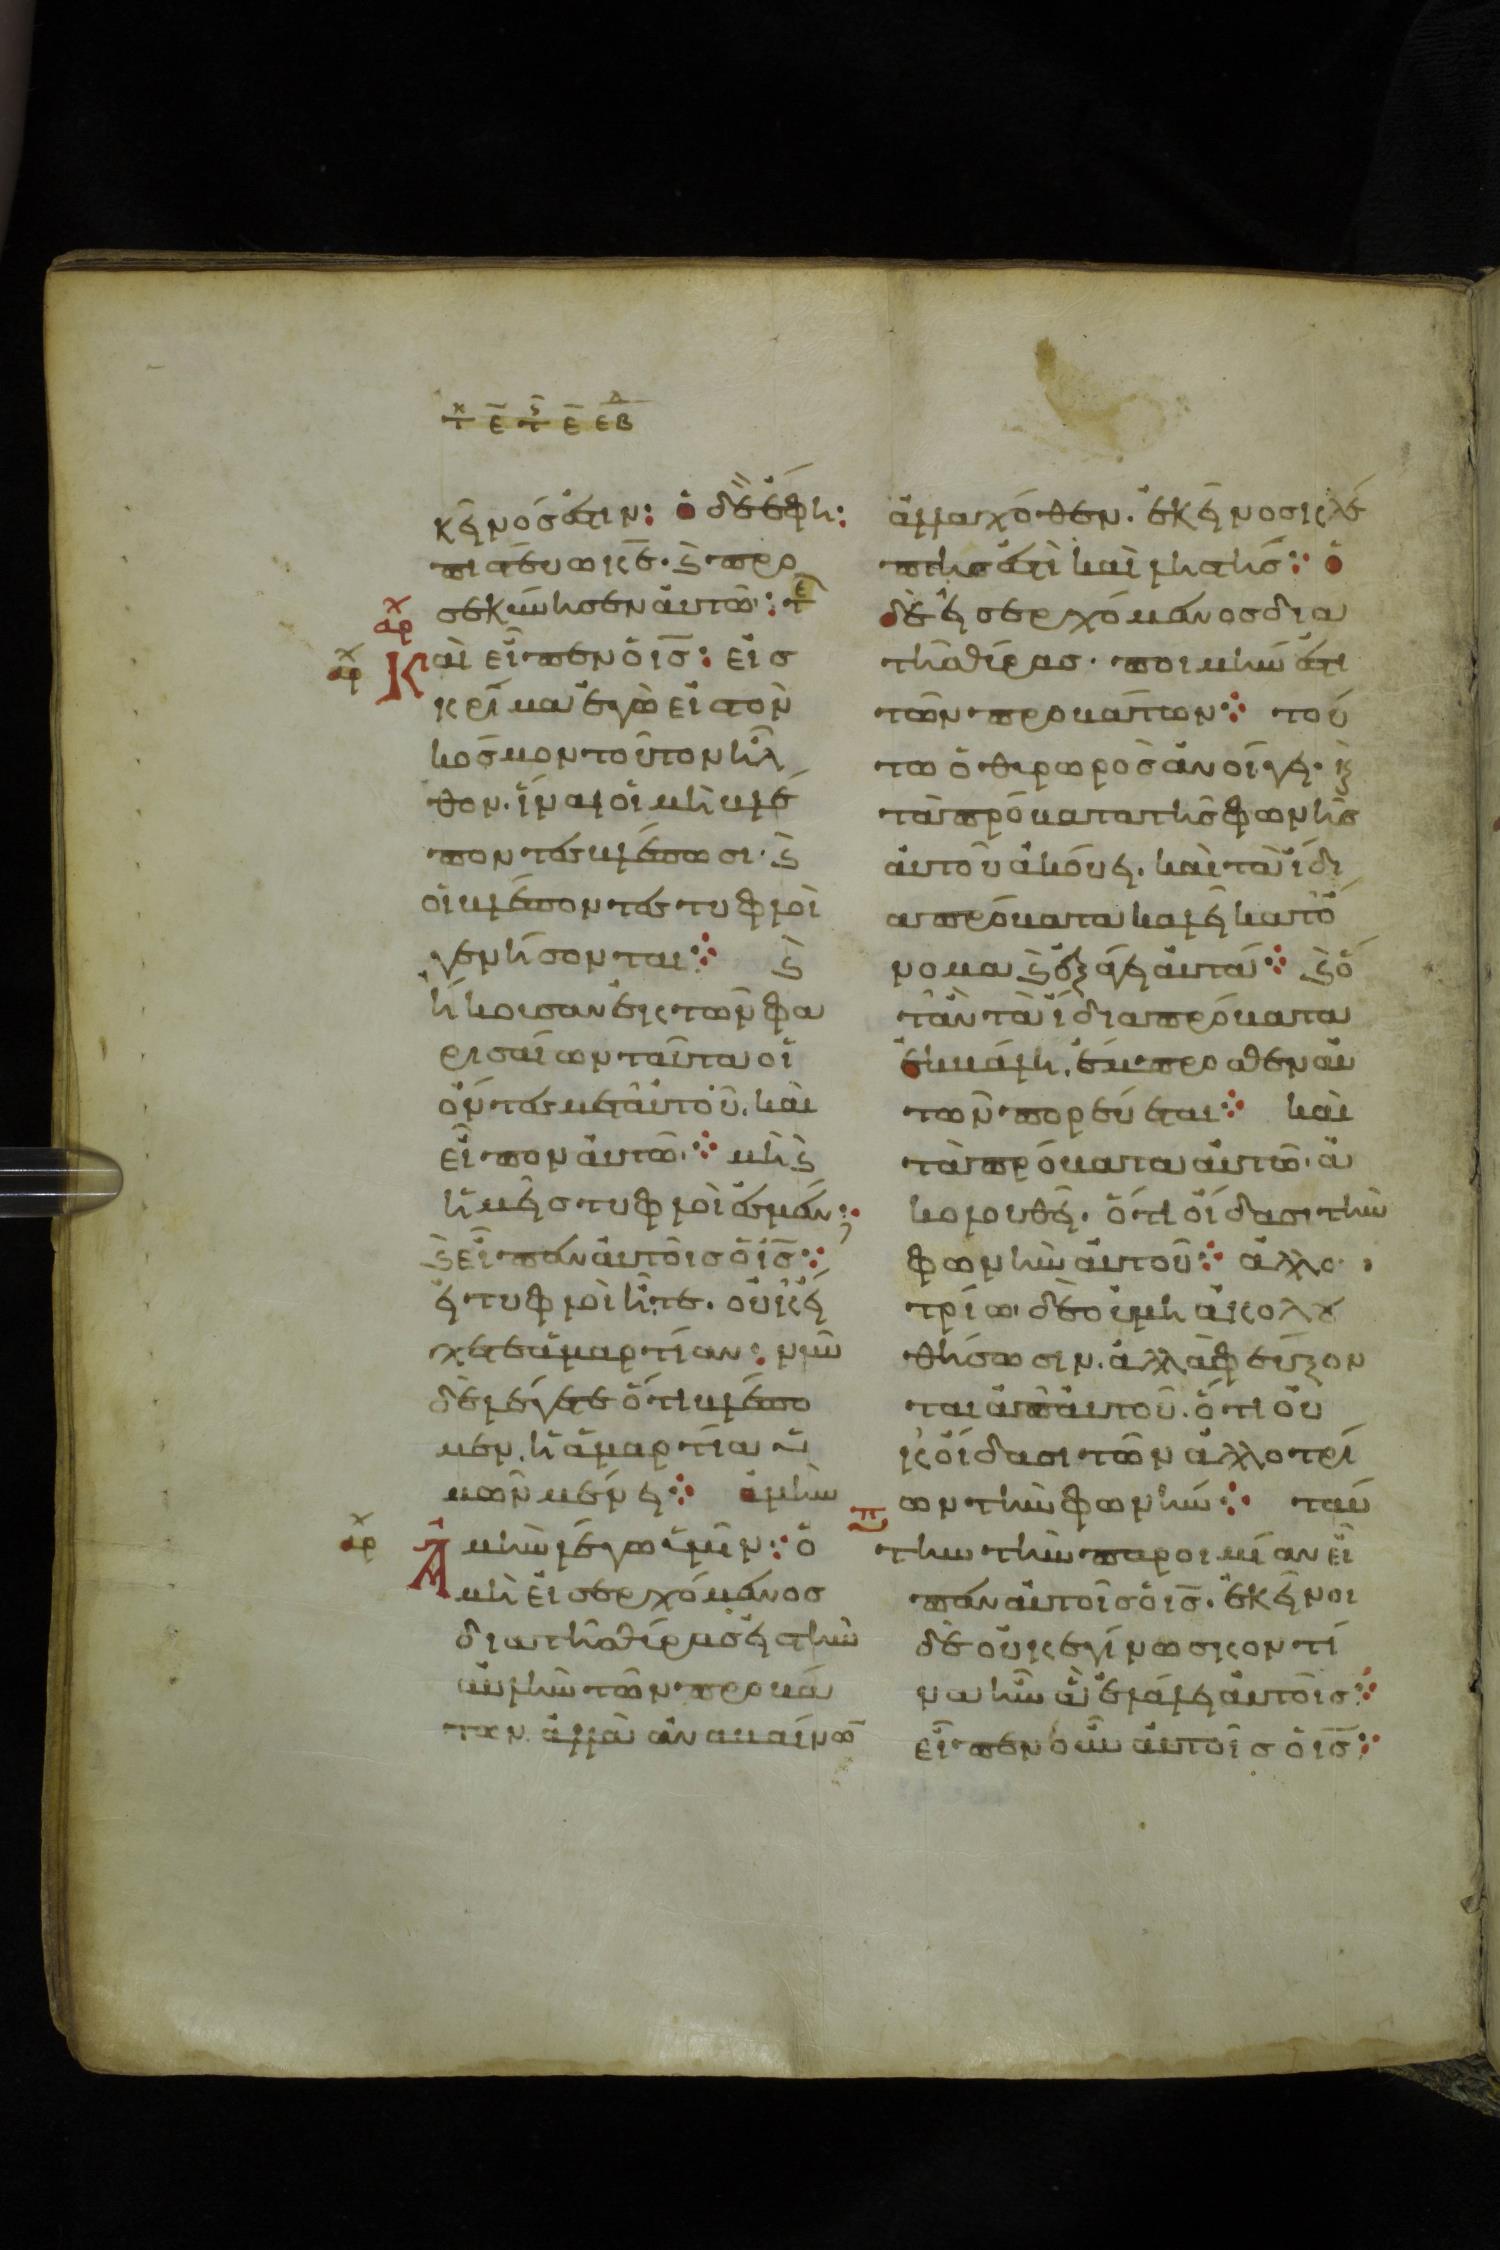 κεῖνός ἐστιν: ὁ δὲ ἔφη:
πιστεύω κε̅· ϗ προ
σεκύνησεν αὐτῶ:
Καὶ εἶπεν ὁ ις̅: εἰς
κρίμα ἐγὼ εἰς τὸν
κόσμον τοῦτον ἦλ
θον. ἵνα οἱ μὴ βλέ
ποντες βλέπωσι· ϗ
οἱ βλέποντες τυφλοὶ
γένήσονται ϗ
ἤκουσαν ἐκ τῶν φα
ρισαίων ταῦτα οἱ
ὄντες μετ' αὐτοῦ. καὶ
εἶπον αὐτῶ· μὴ ϗ
ἡμεῖς τυφλοί ἐσμεν;
ϗ εἶπεν αὐτοῖς ὁ ις̅:
εἰ τυφλοὶ ἦτε. οὐκ εἴ
χετε ἁμαρτίαν: νῦν
δὲ λέγετε ὅτι βλέπο
μεν. ἡ ἁμαρτία ὑ
μῶν μένει ἀμὴν
Ἀμὴν λέγω ὑμῖν: ὁ
μὴ εἰσερχόμενος
διὰ τῆς θύρας εἰς τὴν
αὐλὴν τῶν προβά
των. ἀλλὰ ἀναβαίνων
ἀλλαχόθεν. ἐκεῖνος κλέ
πτης ἐστὶ καὶ ληστής: ὁ
δὲ εἰσερχόμενος διὰ
τῆς θύρας. ποιμήν ἐστι
τῶν προβάτων τού
τω ὁ θυρωρὸς ἀνοίγει. ϗ
τὰ πρόβατα τῆς φωνῆς
αὐτοῦ ἀκούει. καὶ τὰ ἴδι
α πρόβατα καλεῖ κατ' ὄ
νομα ϗ ἐξάγει αὐτά ϗ ὅ
τὰν τὰ ἴδια πρόβατα
ἐκβάλη, ἔμπροσθεν αὐ
τῶν πορεύεται καὶ
τὰ πρόβατα αὐτῶ· ἀ
κολουθεῖ. ὅτι οἴδασι τὴν
φωνὴν αὐτοῦ ἀλλο
τρίω δὲ οὐ μὴ ἀκολου
θήσωσιν. ἀλλὰ φεύξον
ται ἀπ' αὐτοῦ. ὅτι οὐ
κ οἴδασι τῶν ἀλλοτρί
ων τὴν φωνήν ταύ
την τὴν παροιμίαν εἶ
πεν αὐτοῖς ὁ ις̅. ἐκεῖνοι
δὲ οὐκ ἐγίνωσκον τί
να ἦν ἃ ἐλάλει αὐτοῖς
εἶπεν οὖν αὐτοῖς ὁ ις̅